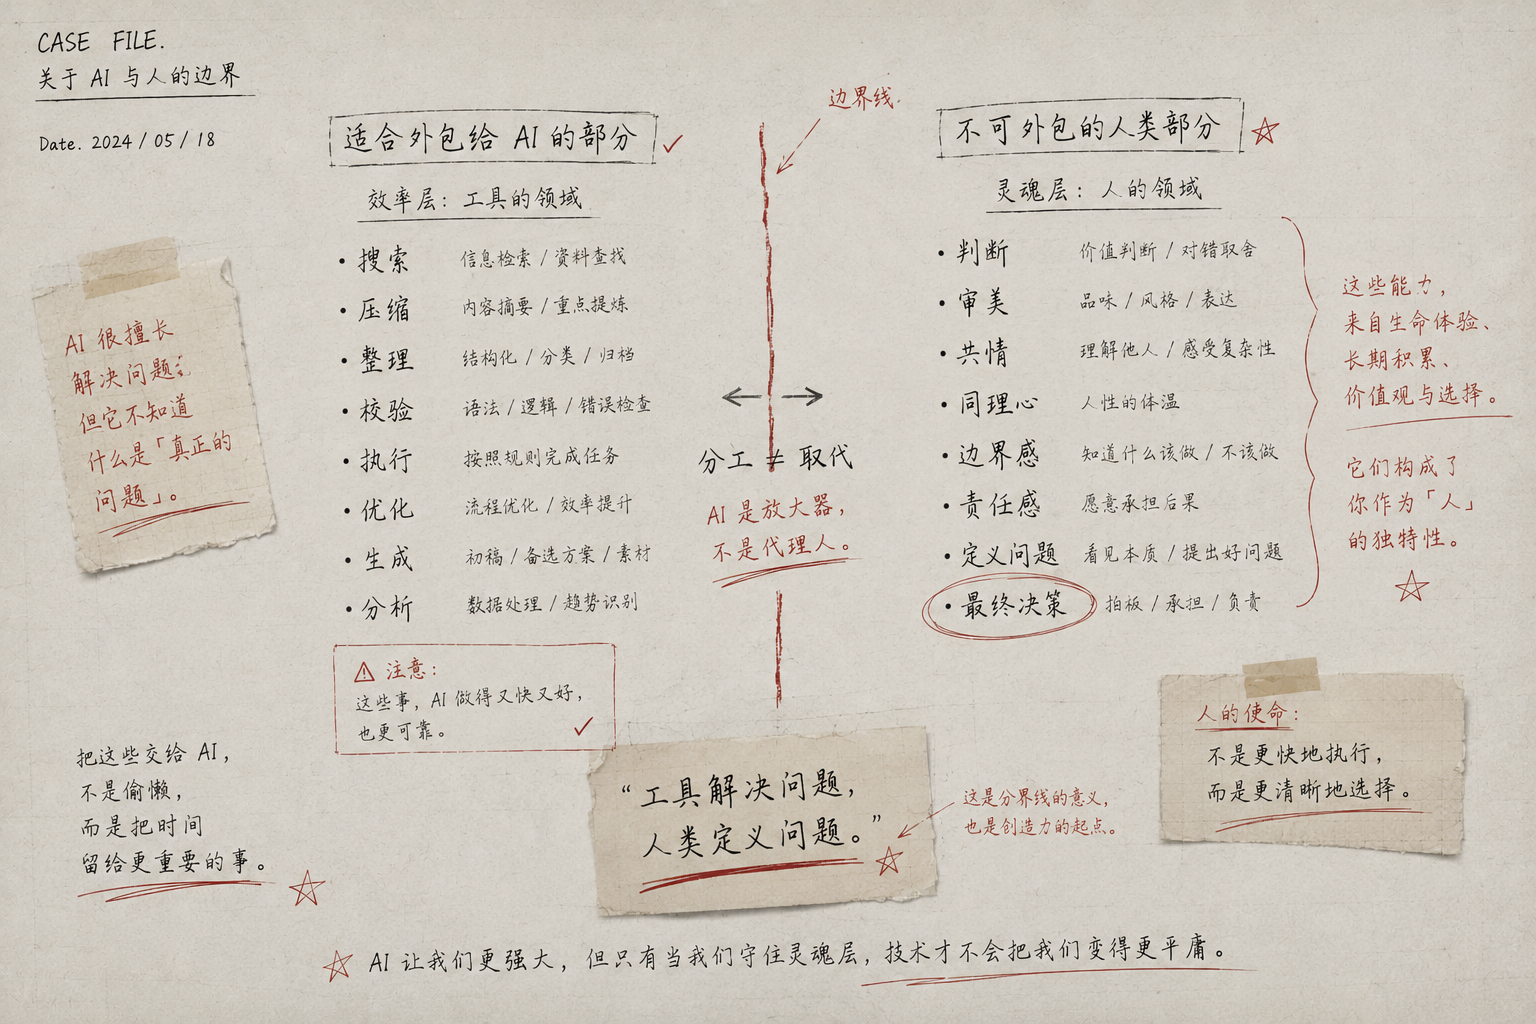 CASE FILE.
关于 AI 与人的边界
Date. 2024 / 05 / 18
AI 很擅长
解决问题;
但它不知道
什么是「真正的
问题」。
把这些交给 AI,
不是偷懒,
而是把时间
留给更重要的事。
适合外包给 AI 的部分
效率层: 工具的领域
• 搜索 信息检索 / 资料查找
• 压缩 内容摘要 / 重点提炼
• 整理 结构化 / 分类 / 归档
• 校验 语法 / 逻辑 / 错误检查
• 执行 按照规则完成任务
• 优化 流程优化 / 效率提升
• 生成 初稿 / 备选方案 / 素材
• 分析 数据处理 / 趋势识别
注意:
这些事, AI 做得又快又好,
也更可靠。
边界线.
分工 ≠ 取代
AI 是放大器,
不是代理人。
不可外包的人类部分
灵魂层: 人的领域
• 判断 价值判断 / 对错取舍
• 审美 品味 / 风格 / 表达
• 共情 理解他人 / 感受复杂性
• 同理心 人性的体温
• 边界感 知道什么该做 / 不该做
• 责任感 愿意承担后果
• 定义问题 看见本质 / 提出好问题
• 最终决策 拍板 / 承担 / 负责
这些能力,
来自生命体验、
长期积累、
价值观与选择。
它们构成了
你作为「人」
的独特性。
“工具解决问题,
人类定义问题。”
这是分界线的意义,
也是创造力的起点。
人的使命:
不是更快地执行,
而是更清晰地选择。
AI 让我们更强大, 但只有当我们守住灵魂层, 技术才不会把我们变得更平庸。